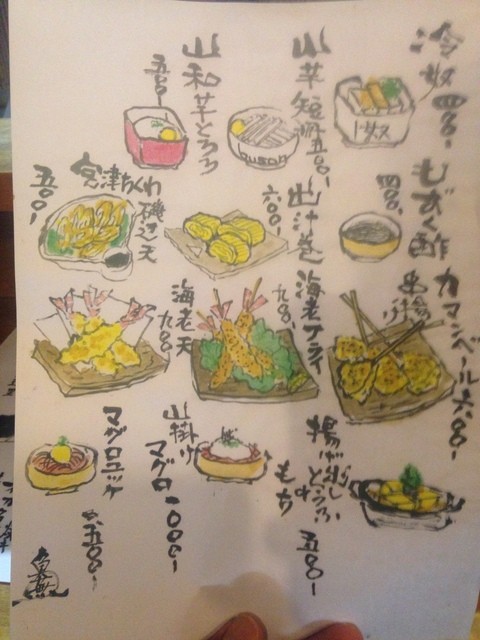 冷奴 四〇〇、
山芋短冊 五〇〇、
山和芋とろろ
五〇〇、
もずく酢
四〇〇、
出汁巻
六〇〇、
宮津ちくわ
磯辺天
五〇〇、
カマンベール
串揚
六〇〇、
海老フライ
九〇〇、
海老天
九〇〇、
揚げ出し
とうふ
もち
五〇〇、
山掛け
マグロ 一〇〇〇、
マグロユッケ
五〇〇、